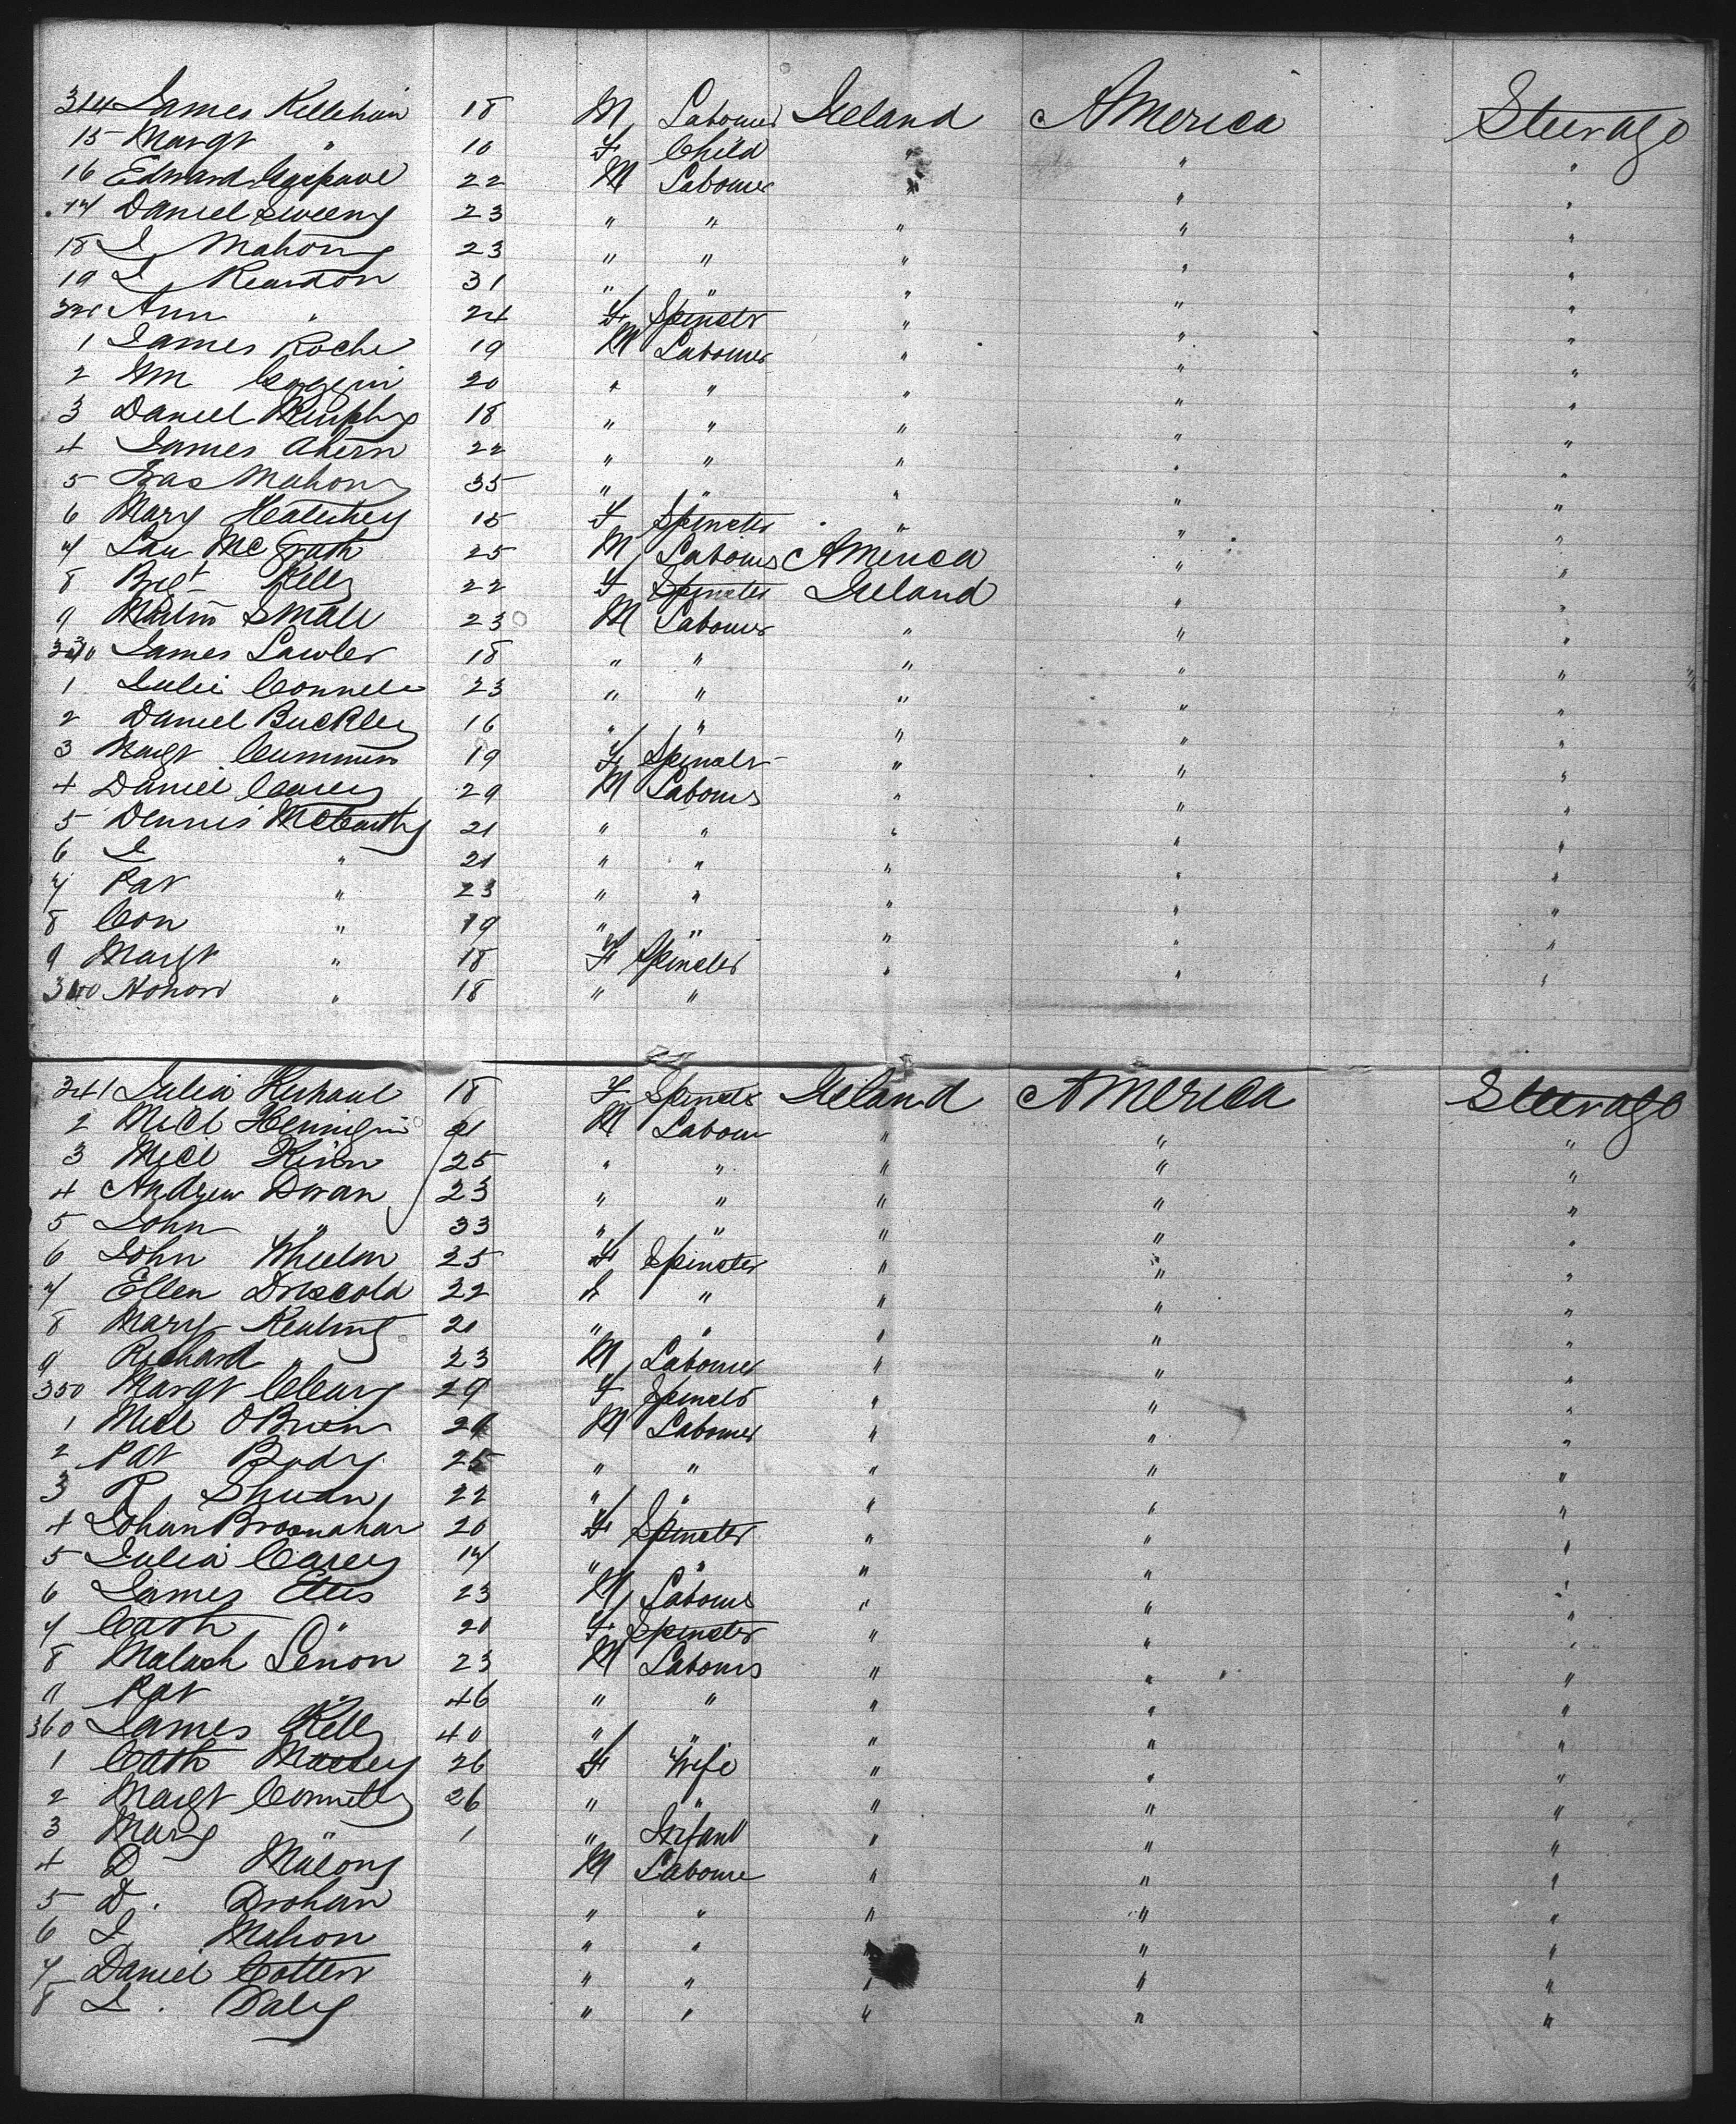 314 James Kellehan 18 M Labourer Ireland America Steerage
15 Margt " 10 F Child " " "
16 Edward 22 M Labourer " " "
17 Daniel Sweeny 23 " " " " "
18 J Mahony 23 " " " " "
19 J Reardon 31 " " " " "
320 Ann " 24 F Spinster " " "
1 James Roche 19 M Labourer " " "
2 Wm Coggin 20 " " " " "
3 Daniel Murphy 18 " " " " "
4 James Ahern 22 " " " " "
5 Mahony 35 " " " " "
6 Mary 15 F Spinster " " "
7 Lau McGrath 25 M Labourer America " "
8 Bigt Kelly 22 F Spinster Ireland " "
9 Martin Small 23 M Labourer " " "
330 James Lawler 18 " " " " "
1 Julie Connell 23 " " " " "
2 Daniel Buckley 16 " " " " "
3 Margt Cummins 19 F Spinster " " "
4 Daniel Carey 29 M Labourer " " "
5 Dennis McCarthy 21 " " " " "
6 J " 21 " " " " "
7 Pat " 23 " " " " "
8 Con " 19 " " " " "
9 Margt " 18 F Spinster " " "
340 Honor " 18 " " " " "
341 Julia 18 F Spinster Ireland America Steerage
2 Micl Hennigin 21 M Labour " " "
3 Micl 25 " " " " "
4 Andrew Doran 23 " " " " "
5 John " 33 " " " " "
6 John Wheelan 25 F Spinster " " "
7 Ellen Driscold 22 " " " " "
8 Mary Keating 20 " " " " "
9 Richard " 23 M Labourer " " "
350 Margt Cleary 29 F Spinster " " "
1 Micl OBrien 20 M Labourer " " "
2 Pat Body 25 " " " " "
3 R 22 " " " " "
4 Johan Brosnahan 20 F Spinster " " "
5 Julia Carey 17 " " " " "
6 James 23 M Labourer " " "
7 Cath " 20 F Spinster " " "
8 Malach Lenon 23 M Labourer " " "
9 Pat " 46 " " " " "
360 James Kelly 40 " " " " "
1 Cath 26 F Wife " " "
2 Margt Connelly 26 " " " " "
3 Mary " 1 " Infant " " "
4 D Malony M Laboure " " "
5 D. Drohan " " " " "
6 J Mahon " " " " "
7 Daniel Cotter " " " " "
8 J. Daly " " " " "